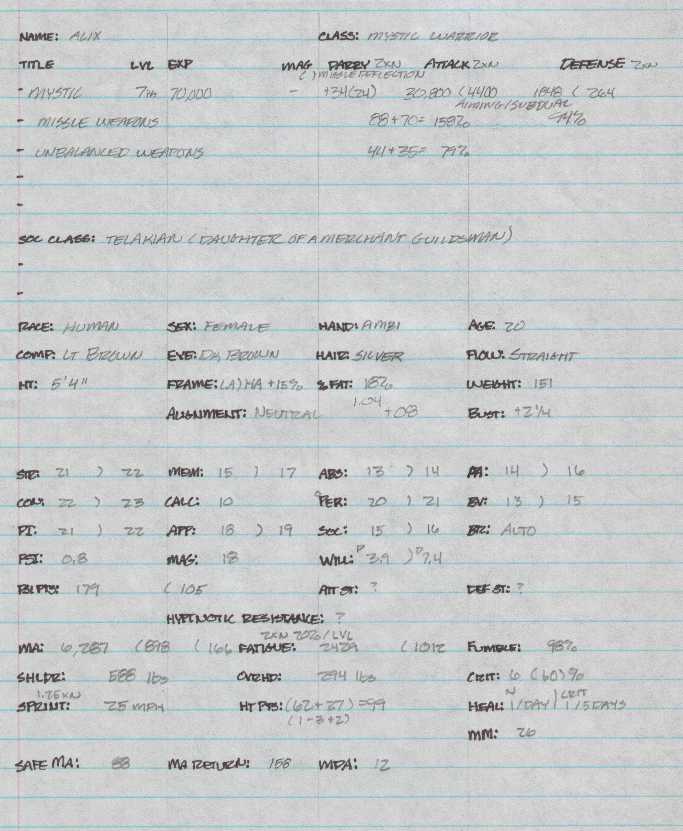 NAME: ALIX CLASS: MYSTIC WARRIOR
TITLE LVL EXP MAG PARRY 2XN ATTACK 2XN DEFENSE 2XN
( ) MISSLE DEFLECTION
- MYSTIC 7TH 70,000 - +34(24) 30,800 (4400 1848 ( 264
AIMING/SUBDUAL
- MISSLE WEAPONS 88+70= 158% 94%
- UNBALANCED WEAPONS 44+35= 79%
-
-
SOC CLASS: TELAKIAN (DAUGHTER OF A MERCHANT GUILDSMAN)
-
-
RACE: HUMAN SEX: FEMALE HAND: AMBI AGE: 20
COMP: LT BROWN EYE: DK BROWN HAIR: SILVER FLOW: STRAIGHT
HT: 5'4" FRAME: (A) HA +15% % FAT: 18% WEIGHT: 151
ALIGNMENT: NEUTRAL 1.04 +08 BUST: +2 1/4
STR: 21 ) 22 MEM: 15 ) 17 ABS: 13 ) 14 AA: 14 ) 16
CON: 22 ) 23 CALC: 10 PER: 20 ) 21 EV: 13 ) 15
PI: 21 ) 22 APP: 18 ) 19 SOC: 15 ) 16 BTR: AUTO
PSI: 0.8 MAG: 18 WILL: P 3.9 ) P 7.4
179 ( 105 ATT ST: ? DEF ST: ?
HYPNOTIC RESISTANCE: ?
2XN 20%/LVL
MA: 6,287 (898 ( 166 FATIGUE: 2429 ( 1012 FUMBLE: 98%
SHLDR: 588 lbs OVRHD: 294 lbs CRIT: 6 (60)%
1.25XN N CRIT
SPRINT: 25 MPH HT PTS: (62+37)=99 HEAL: 1/DAY | 1/5 DAYS
(1-3+2)
MM: 26
SAFE MA: 88 MA RETURN: 158 MDA: 12